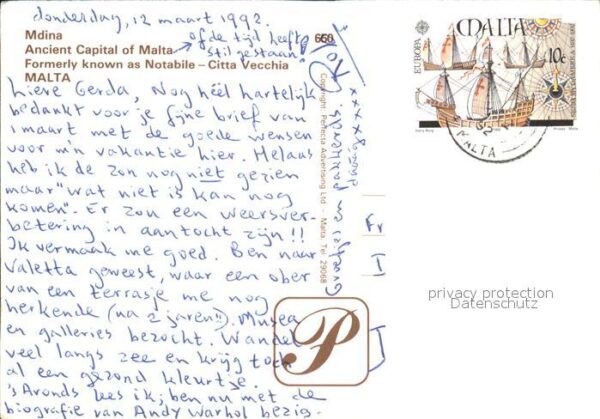 donderdag, 12 maart 1992.
Mdina
Ancient Capital of Malta
Formerly known as Notabile – Citta Vecchia
MALTA
of de tijd heeft
stil gestaan!
660
Lieve Gerda, Nog héél hartelijk
bedankt voor je fijne brief van
1 maart met de goede wensen
voor m'n vakantie hier. Helaas
heb ik de zon nog niet gezien
maar "wat niet is kan nog
komen". Er zou een weersver-
betering in aantocht zijn!!
Ik vermaak me goed. Ben naar
Valetta geweest, waar een ober
van een terrasje me nog
herkende (na 2 jaren!!). Musea
en galleries bezocht. Wandel
veel langs zee en krijg toch
al een gezond kleurtje.
's Avonds lees ik; ben nu met de
biografie van Andy Warhol bezig.
Groetjes en
xxxxx
Copyright Perfecta Advertising Ltd - Malta. Tel: 29068
P
EUROPA
MALTA
10c
MALTA
Fr
I
I
privacy protection
Datenschutz